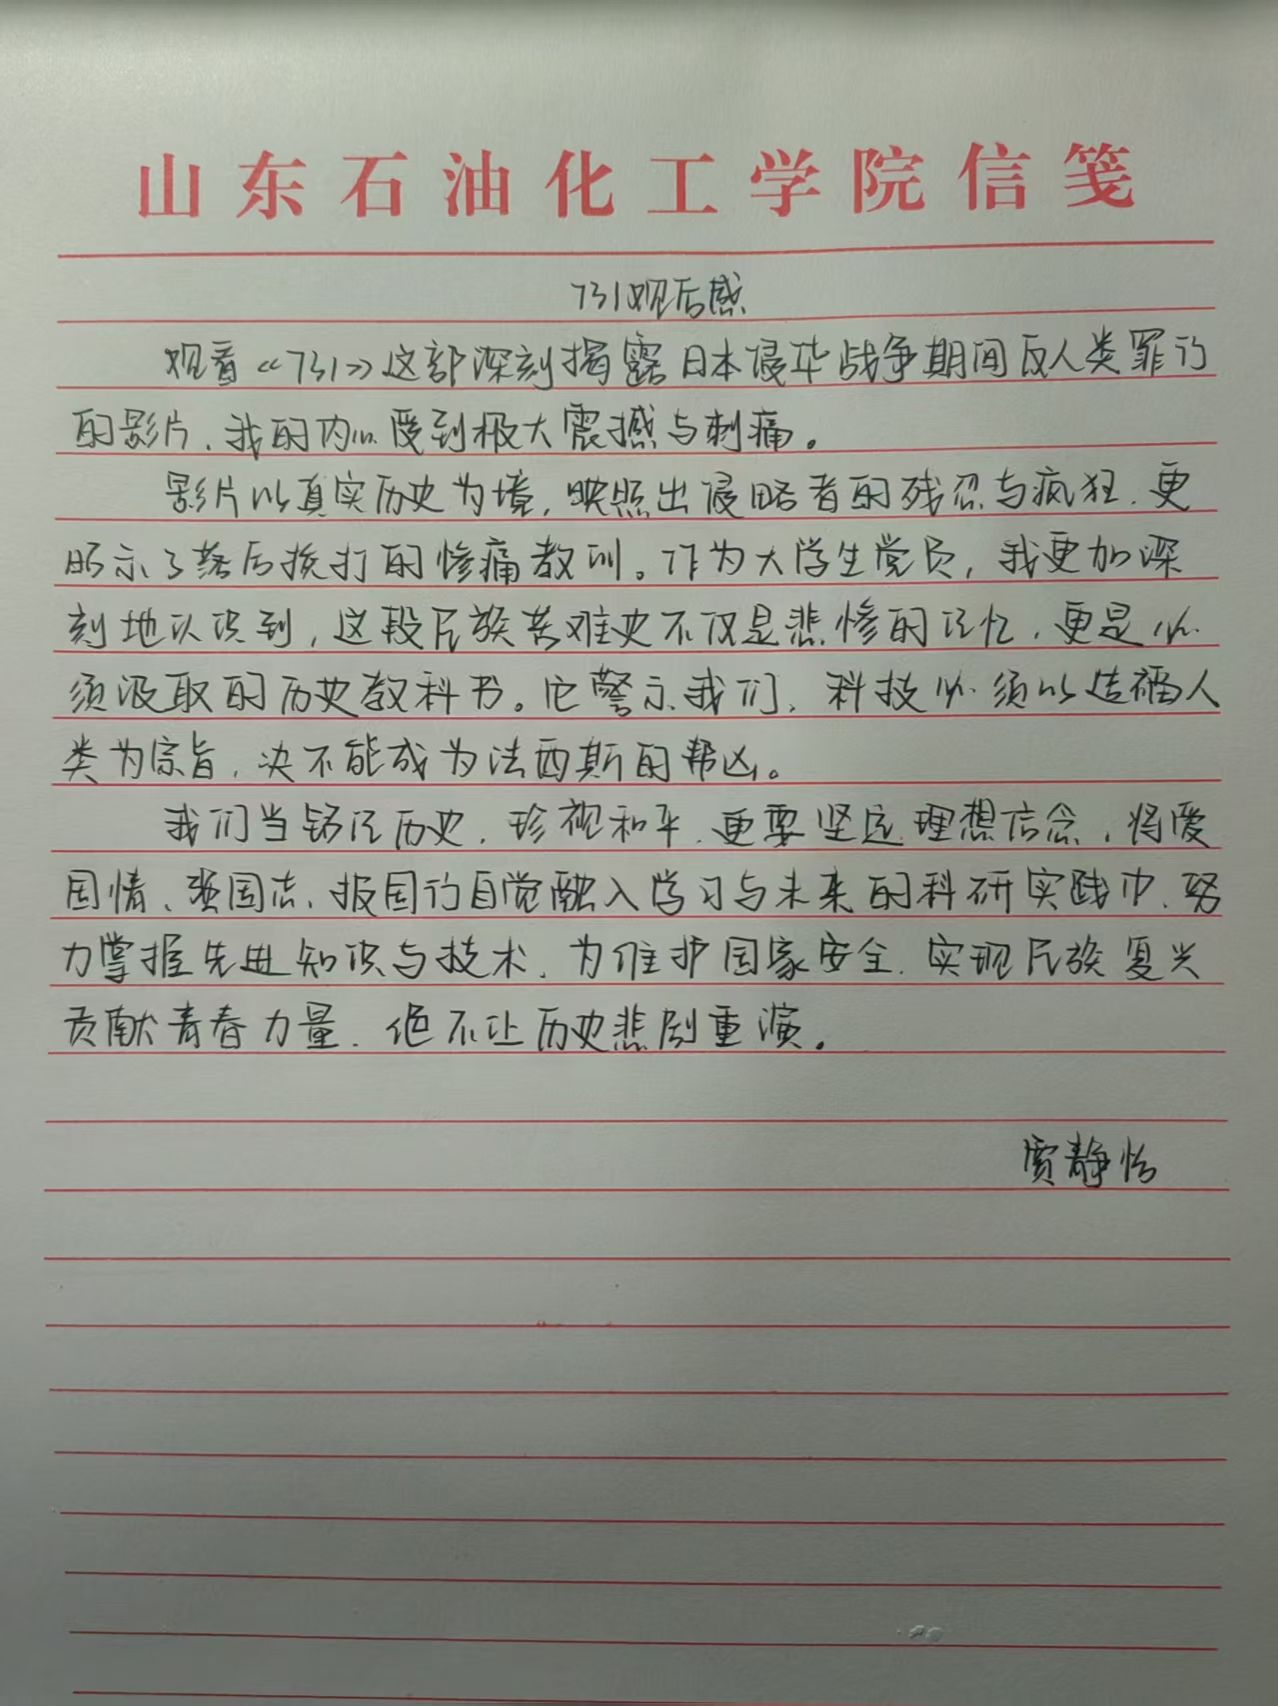 山东石油化工学院信笺
731观后感
观看《731》这部深刻揭露日本侵华战争期间反人类罪行
的影片，我的内心受到极大震撼与刺痛。
影片以真实历史为境，映照出侵略者的残忍与疯狂，更
昭示了落后挨打的惨痛教训。作为大学生党员，我更加深
刻地认识到，这段民族苦难史不仅是悲惨的记忆，更是必
须汲取的历史教科书。它警示我们，科技必须以造福人
类为宗旨，决不能成为法西斯的帮凶。
我们当铭记历史，珍视和平，更要坚定理想信念，将爱
国情、强国志、报国行自觉融入学习与未来的科研实践中，努
力掌握先进知识与技术，为维护国家安全，实现民族复兴
贡献青春力量，绝不让历史悲剧重演。
贾静怡